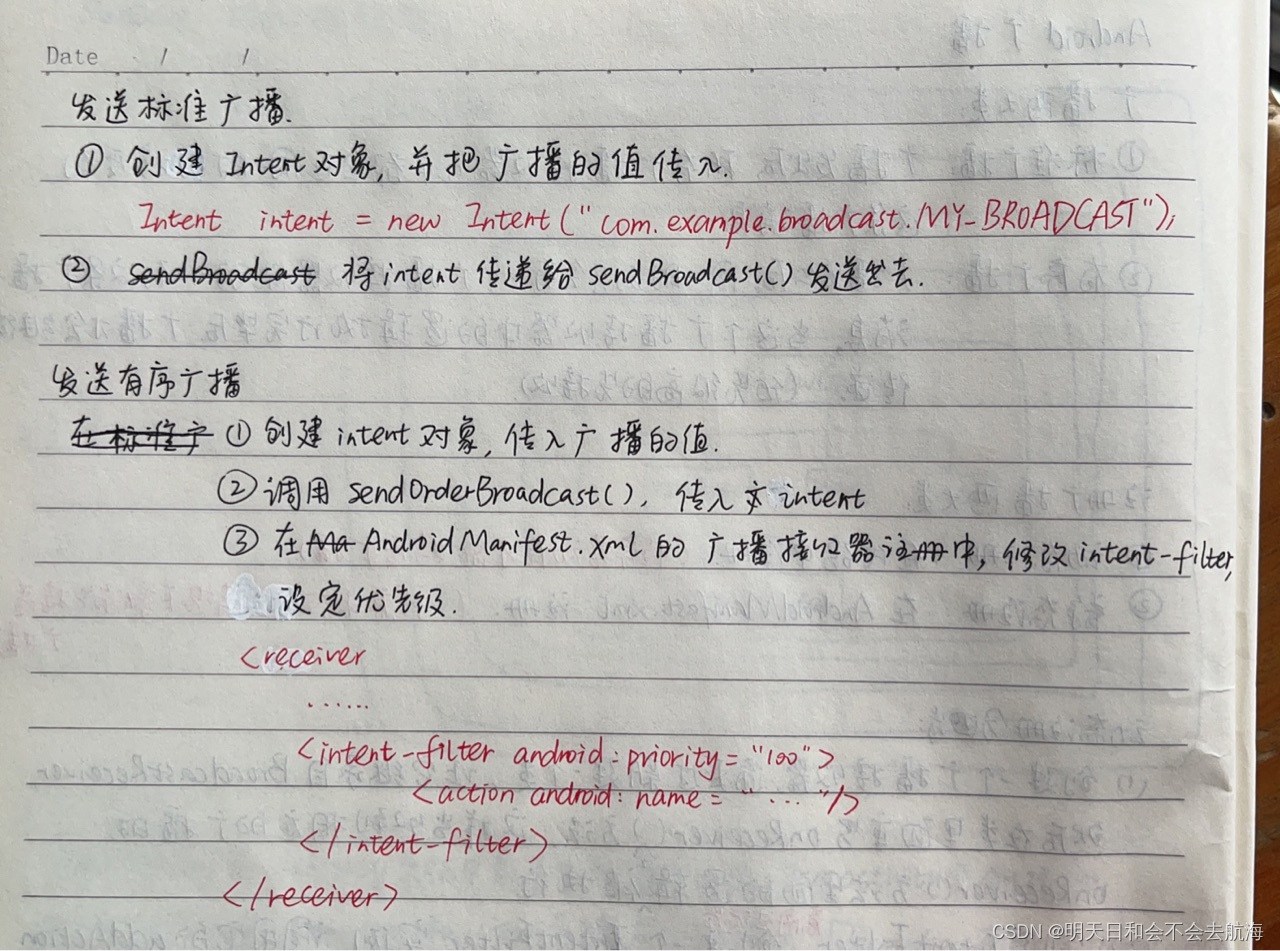 Date / /
发送标准广播.
① 创建 Intent 对象, 并把广播的值传入.
Intent intent = new Intent("com.example.broadcast.MY_BROADCAST");
② sendBroadcast 将 intent 传递给 sendBroadcast() 发送出去.
发送有序广播
在标准广 ① 创建 intent 对象, 传入广播的值.
② 调用 sendOrderBroadcast(), 传入 intent
③ 在 AndroidManifest.xml 的广播接收器注册中, 修改 intent-filter,
设定优先级.
<receiver
......
<intent-filter android:priority="100">
<action android:name="..."/>
</intent-filter>
</receiver>
CSDN @明天日和会不会去航海